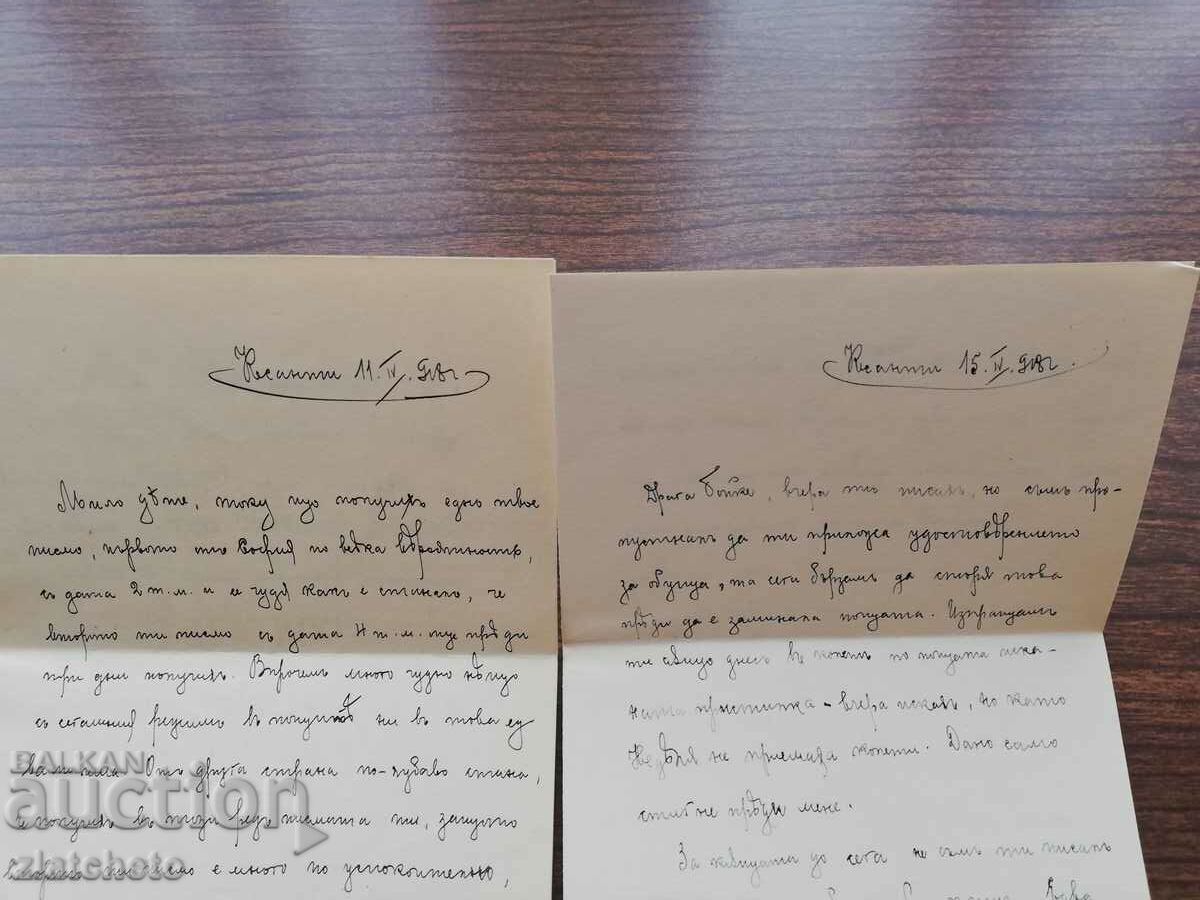 Ксанти 11. IV. 918 г
Мило дѣте, току що получихъ едно твое
писмо, първото отъ София по всѣка вѣроятность,
съ дата 2 т. м. и се чудя какъ е станало, че
второто ти писмо съ дата 4 т. м. още прѣди
три дни получихъ. Впрочемъ много чудно нѣщо
съ сегашния режимъ въ пощитѣ ни въ това
Отъ друга страна по-хубаво стана,
че получихъ въ този редъ писмата ти, защото
второто ти писмо е много по успокоително,
Ксанти 15. IV. 918 г.
Драга Бойке, вчера ти писахъ, но съмъ про-
пустналъ да ти приложа удостовѣрението
за обуща, та сега бързамъ да сторя това
прѣди да е заминала пощата. Изпращамъ
ти също днесъ въ колетъ по пощата иска-
ната престилка - вчера исках, но като
Недѣля не приемаха колети. Дано само
стигне прѣди мене.
За квицата до сега не съмъ ти писалъ
BALKAN
auction
zlatcheto